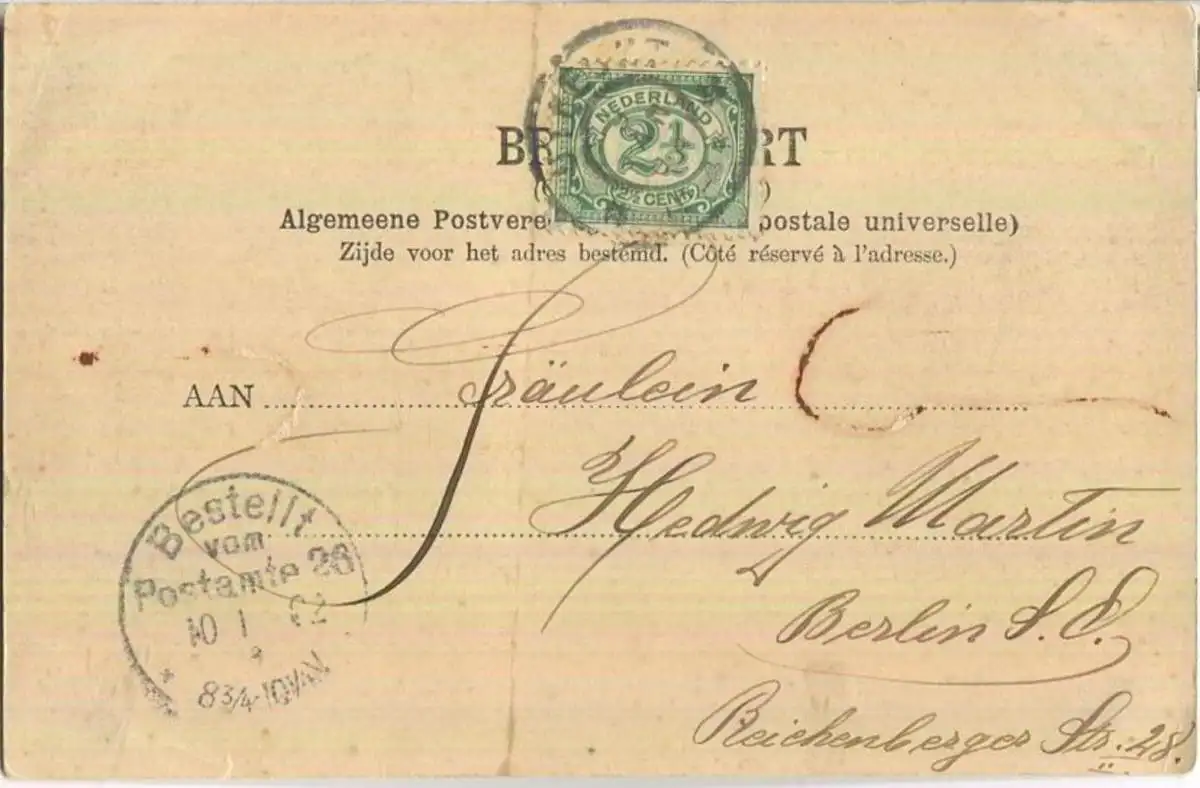 NEDERLAND
2½
2½ CENT
BR RT
Algemeene Postvere postale universelle)
Zijde voor het adres bestemd. (Côté réservé à l'adresse.)
AAN Fräulein
Hedwig Martin
Berlin S. E.
Reichenberger Str. 28.
II
Bestellt
vom
Postamte 26
10 1 02
8¾-10¼V